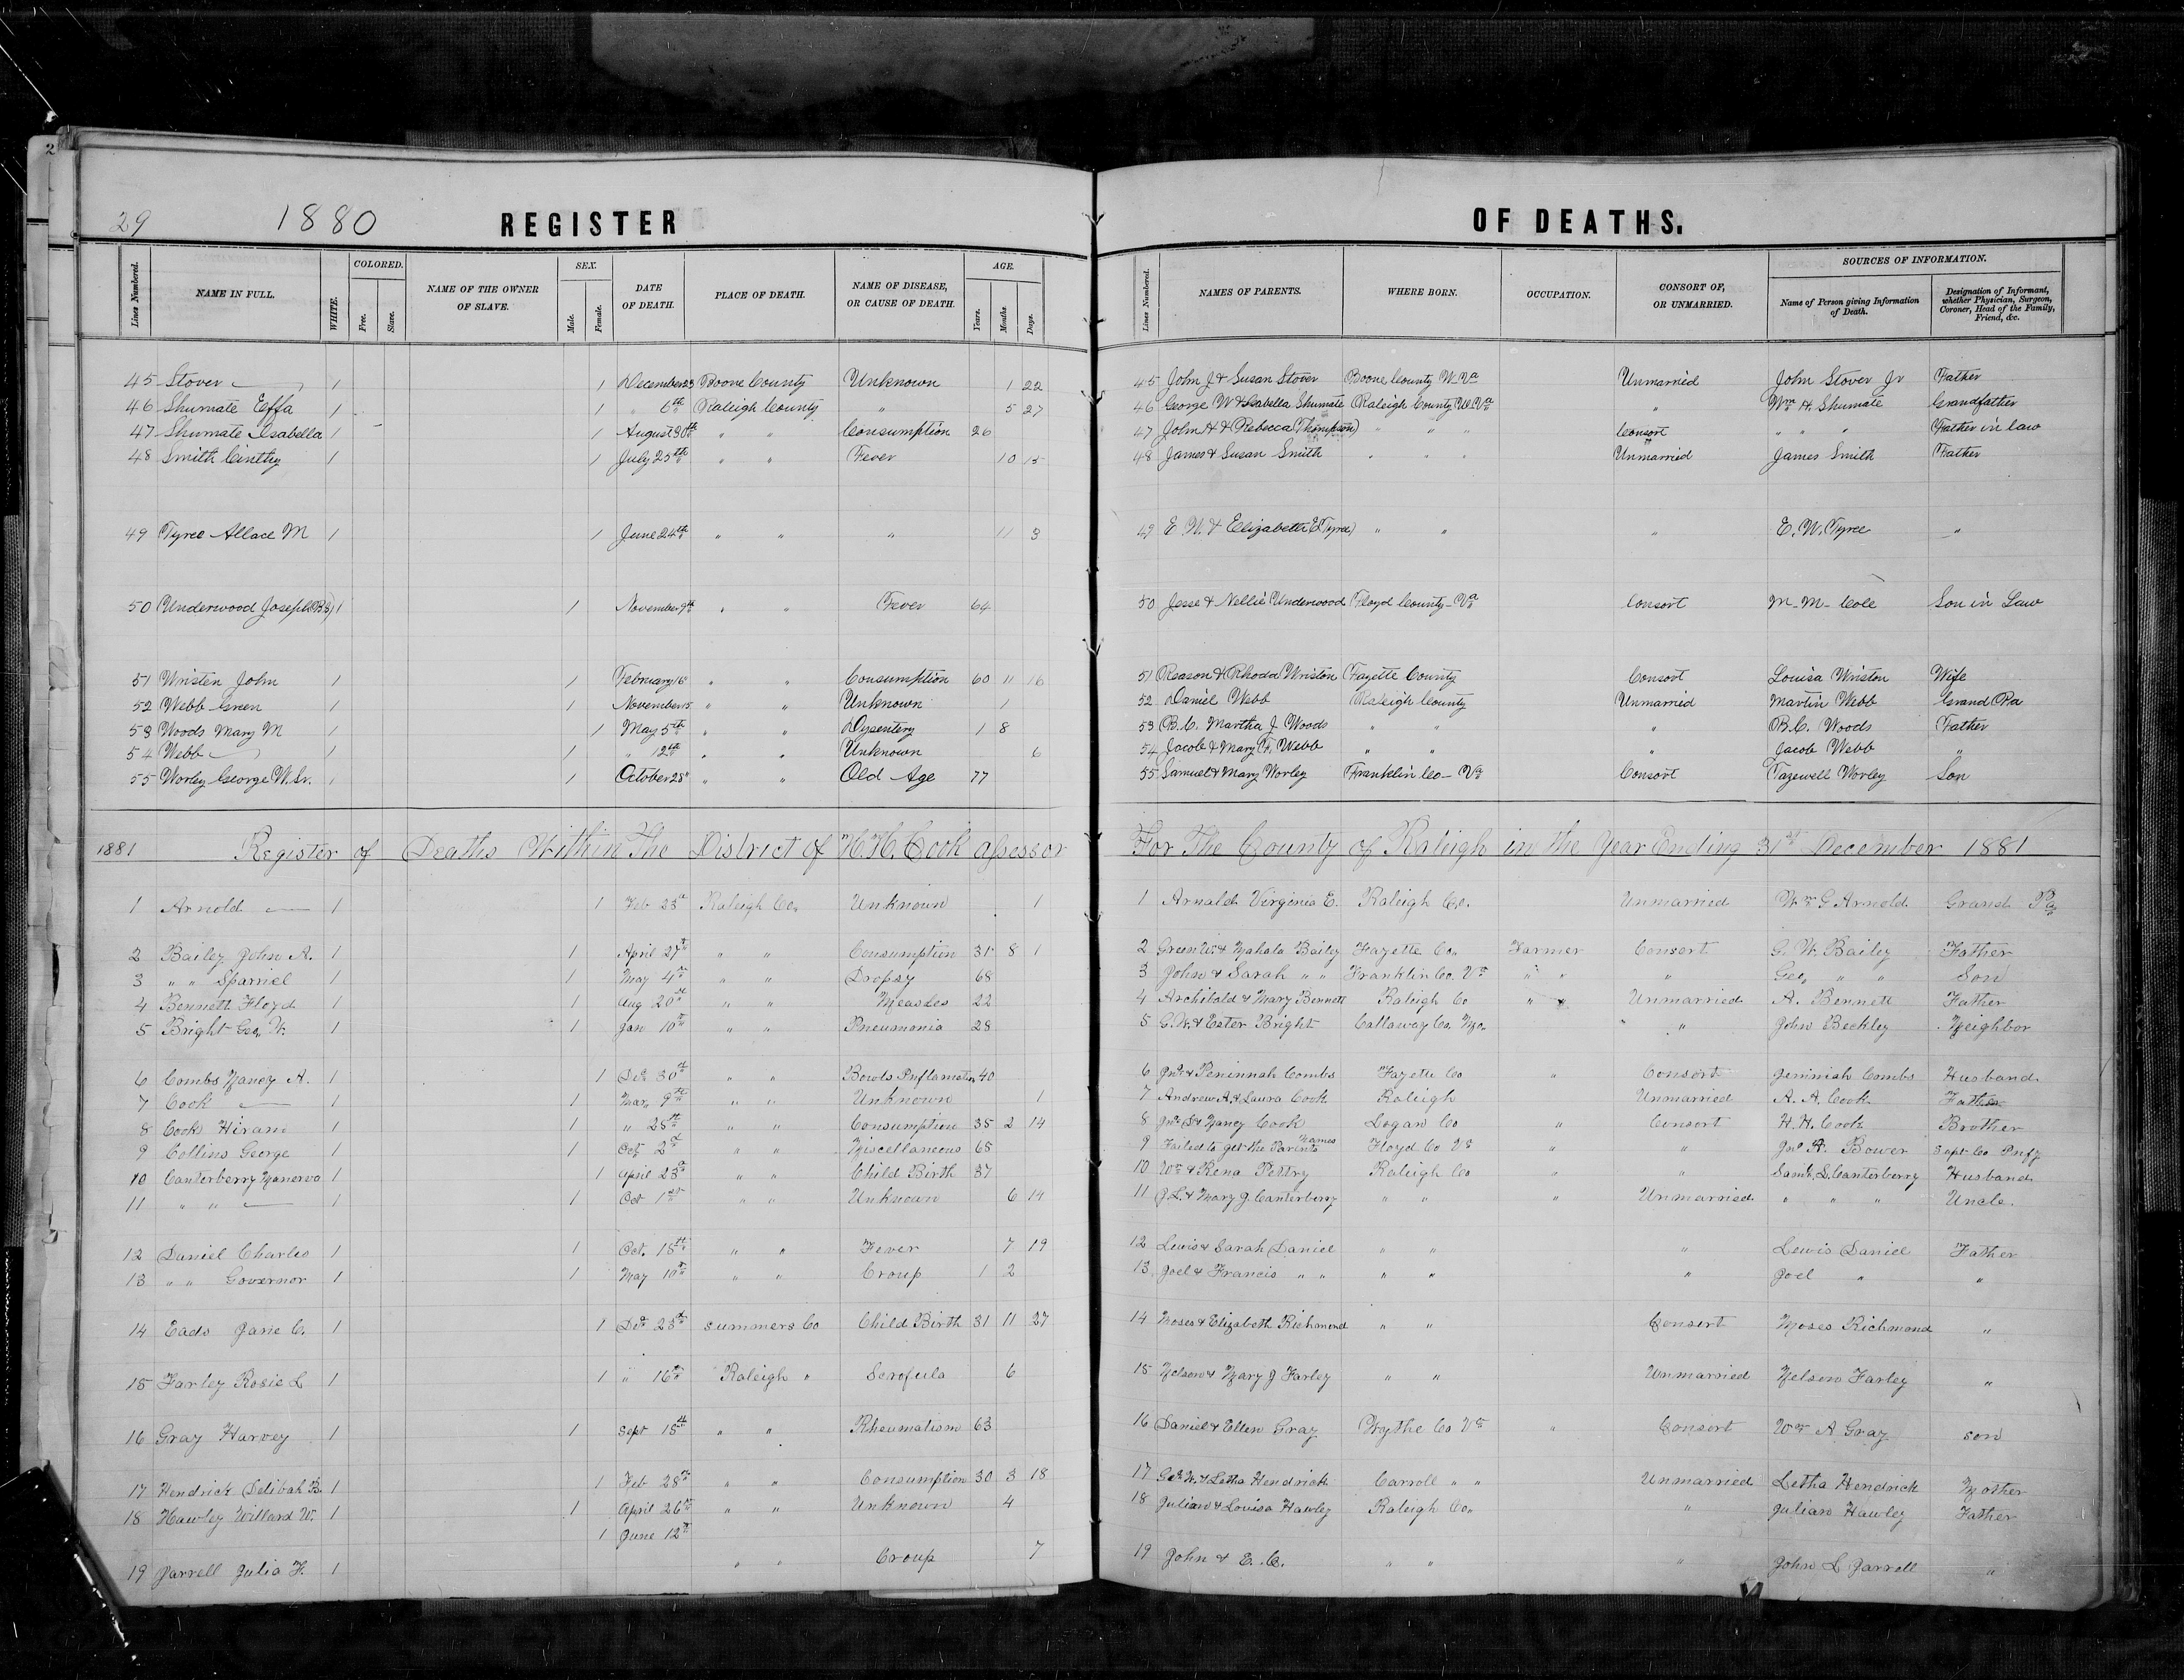 2
29 1880 REGISTER
Lines Numbered. NAME IN FULL. WHITE. COLORED. Free. Slave. NAME OF THE OWNER OF SLAVE. SEX. Male. Female. DATE OF DEATH. PLACE OF DEATH. NAME OF DISEASE, OR CAUSE OF DEATH. AGE. Years. Months. Days.
45 Stover — 1 1 December 23 Boone County Unknown 1 22
46 Shumate Effa 1 1 " 6th Raleigh County " 5 27
47 Shumate Isabella 1 1 August 30th " " Consumption 26
48 Smith Cinthy 1 1 July 25th " " Fever 10 15
49 Tyree Allace M 1 1 June 24th " " " 11 3
50 Underwood Joseph (R3) 1 1 November 9th " " Fever 64
51 Wristen John 1 1 February 16 " " Consumption 60 11 16
52 Webb Green 1 1 November 15 " " Unknown 1
53 Woods Mary M 1 1 May 5th " " Dysentery 1 8
54 Webb — 1 1 " 12th " " Unknown 6
55 Worley George W. Sr. 1 1 October 28" " " Old Age 77
1881 Register of Deaths Within The District of H. H. Cook assessor
1 Arnold — 1 1 Feb 23d Raleigh Co, Unknown 1
2 Bailey John A. 1 1 April 27th " " Consumption 31 8 1
3 " " Sparriel 1 1 May 4th " " Dropsy 68
4 Bennett Floyd 1 1 Aug 20th " " Measles 22
5 Bright Geo, W. 1 1 Jan 10th " " Pneumonia 28
6 Combs Nancy A. 1 1 Dec 30th " " Bowls Inflamation 40
7 Cook — 1 1 Mar, 9th " " Unknown 1
8 Cook Hiram 1 1 " 28th " " Consumption 35 2 14
9 Collins George 1 1 Oct, 2d " " Miscellaneous 65
10 Canterberry Manerva 1 1 April 23d " " Child Birth 37
11 " " — 1 1 Oct 1st " " Unknown 6 14
12 Daniel Charles 1 1 Oct. 18th " " Fever 7 19
13 " " Governor 1 1 May 10th " " Croup 1 2
14 Eads Jane C. 1 1 Dec 25th Summers Co Child Birth 31 11 27
15 Farley Rosie L 1 1 " 16th Raleigh " Scrofula 6
16 Gray Harvey 1 1 Sept 15th " " Rheumatism 63
17 Hendrick Delibah B. 1 1 Feb 28th " " Consumption 30 3 18
18 Hawley Willard W. 1 1 April 26th " " Unknown 4
1 June 12th
19 Jarrell Julia F. 1 " " Croup 7
OF DEATHS.
Lines Numbered. NAMES OF PARENTS. WHERE BORN. OCCUPATION. CONSORT OF, OR UNMARRIED. SOURCES OF INFORMATION. Name of Person giving Information of Death. Designation of Informant, whether Physician, Surgeon, Coroner, Head of the Family, Friend, &c.
45 John J & Susan Stover Boone County W Va Unmarried John Stover Jr Father
46 George W & Isabella Shumate Raleigh County W Va " Wm H. Shumate Grandfather
47 John H & Rebecca (Thompson) " " " Consort " " " Father in law
48 James & Susan Smith " " " Unmarried James Smith Father
49 E. W. & Elizabeth E Tyree) " " " E. W. Tyree "
50 Jesse & Nellie Underwood Floyd County - Va Consort M. M. Cole Son in Law
51 Reason & Rhoda Wriston Fayette County Consort Louisa Wriston Wife
52 Daniel Webb Raleigh County Unmarried Martin Webb Grand Pa
53 B. C. Martha J Woods " " " B. C. Woods Father
54 Jacob & Mary F. Webb " " " Jacob Webb "
55 Samuel & Mary Worley Franklin Co - Va Consort Tazewell Worley Son
For The County of Raleigh in the Year Ending 31st December 1881
1 Arnald Virginia E. Raleigh Co. Unmarried Wm G Arnold Grand Pa
2 Green W. & Mahala Bailey Fayette Co, Farmer Consort G. W. Bailey Father
3 John & Sarah " " Franklin Co. Va " " " Geo, " " Son
4 Archibald & Mary Bennett Raleigh Co " " Unmarried A. Bennett Father
5 G. W. & Ester Bright Callaway Co, Mo. " " John Beckley Neighbor
6 Jno. & Peninnah Combs Fayette Co " Consort Jemimiah Combs Husband
7 Andrew A. & Laura Cook Raleigh Unmarried A. A. Cook Father
8 & Nancy Cook Logan Co " Consort H. H. Cook Brother
9 Failed to get the Parents Names Floyd Co Va " " Jno A. Bower Supt Co
10 Wm & Rena Pettry Raleigh Co " Saml. S. Canterberry Husband
11 J. L. & Mary J. Canterberry " " " Unmarried " " " Uncle.
12 Lewis & Sarah Daniel " " " Lewis Daniel Father
13 Joel & Francis " " " " " Joel " "
14 Moses & Elizabeth Richmond " " Consort Moses Richmond "
15 Nelson & Mary J Farley " " Unmarried Nelson Farley "
16 Daniel & Ellen Gray Wythe Co Va " Consort Wm A Gray son
17 Geo W. & Letha Hendrick Carroll " " Unmarried Letha Hendrick Mother
18 Julian & Louisa Hawley Raleigh Co, " Julian Hawley Father
19 John & E. C. " " " John L Jarroll "